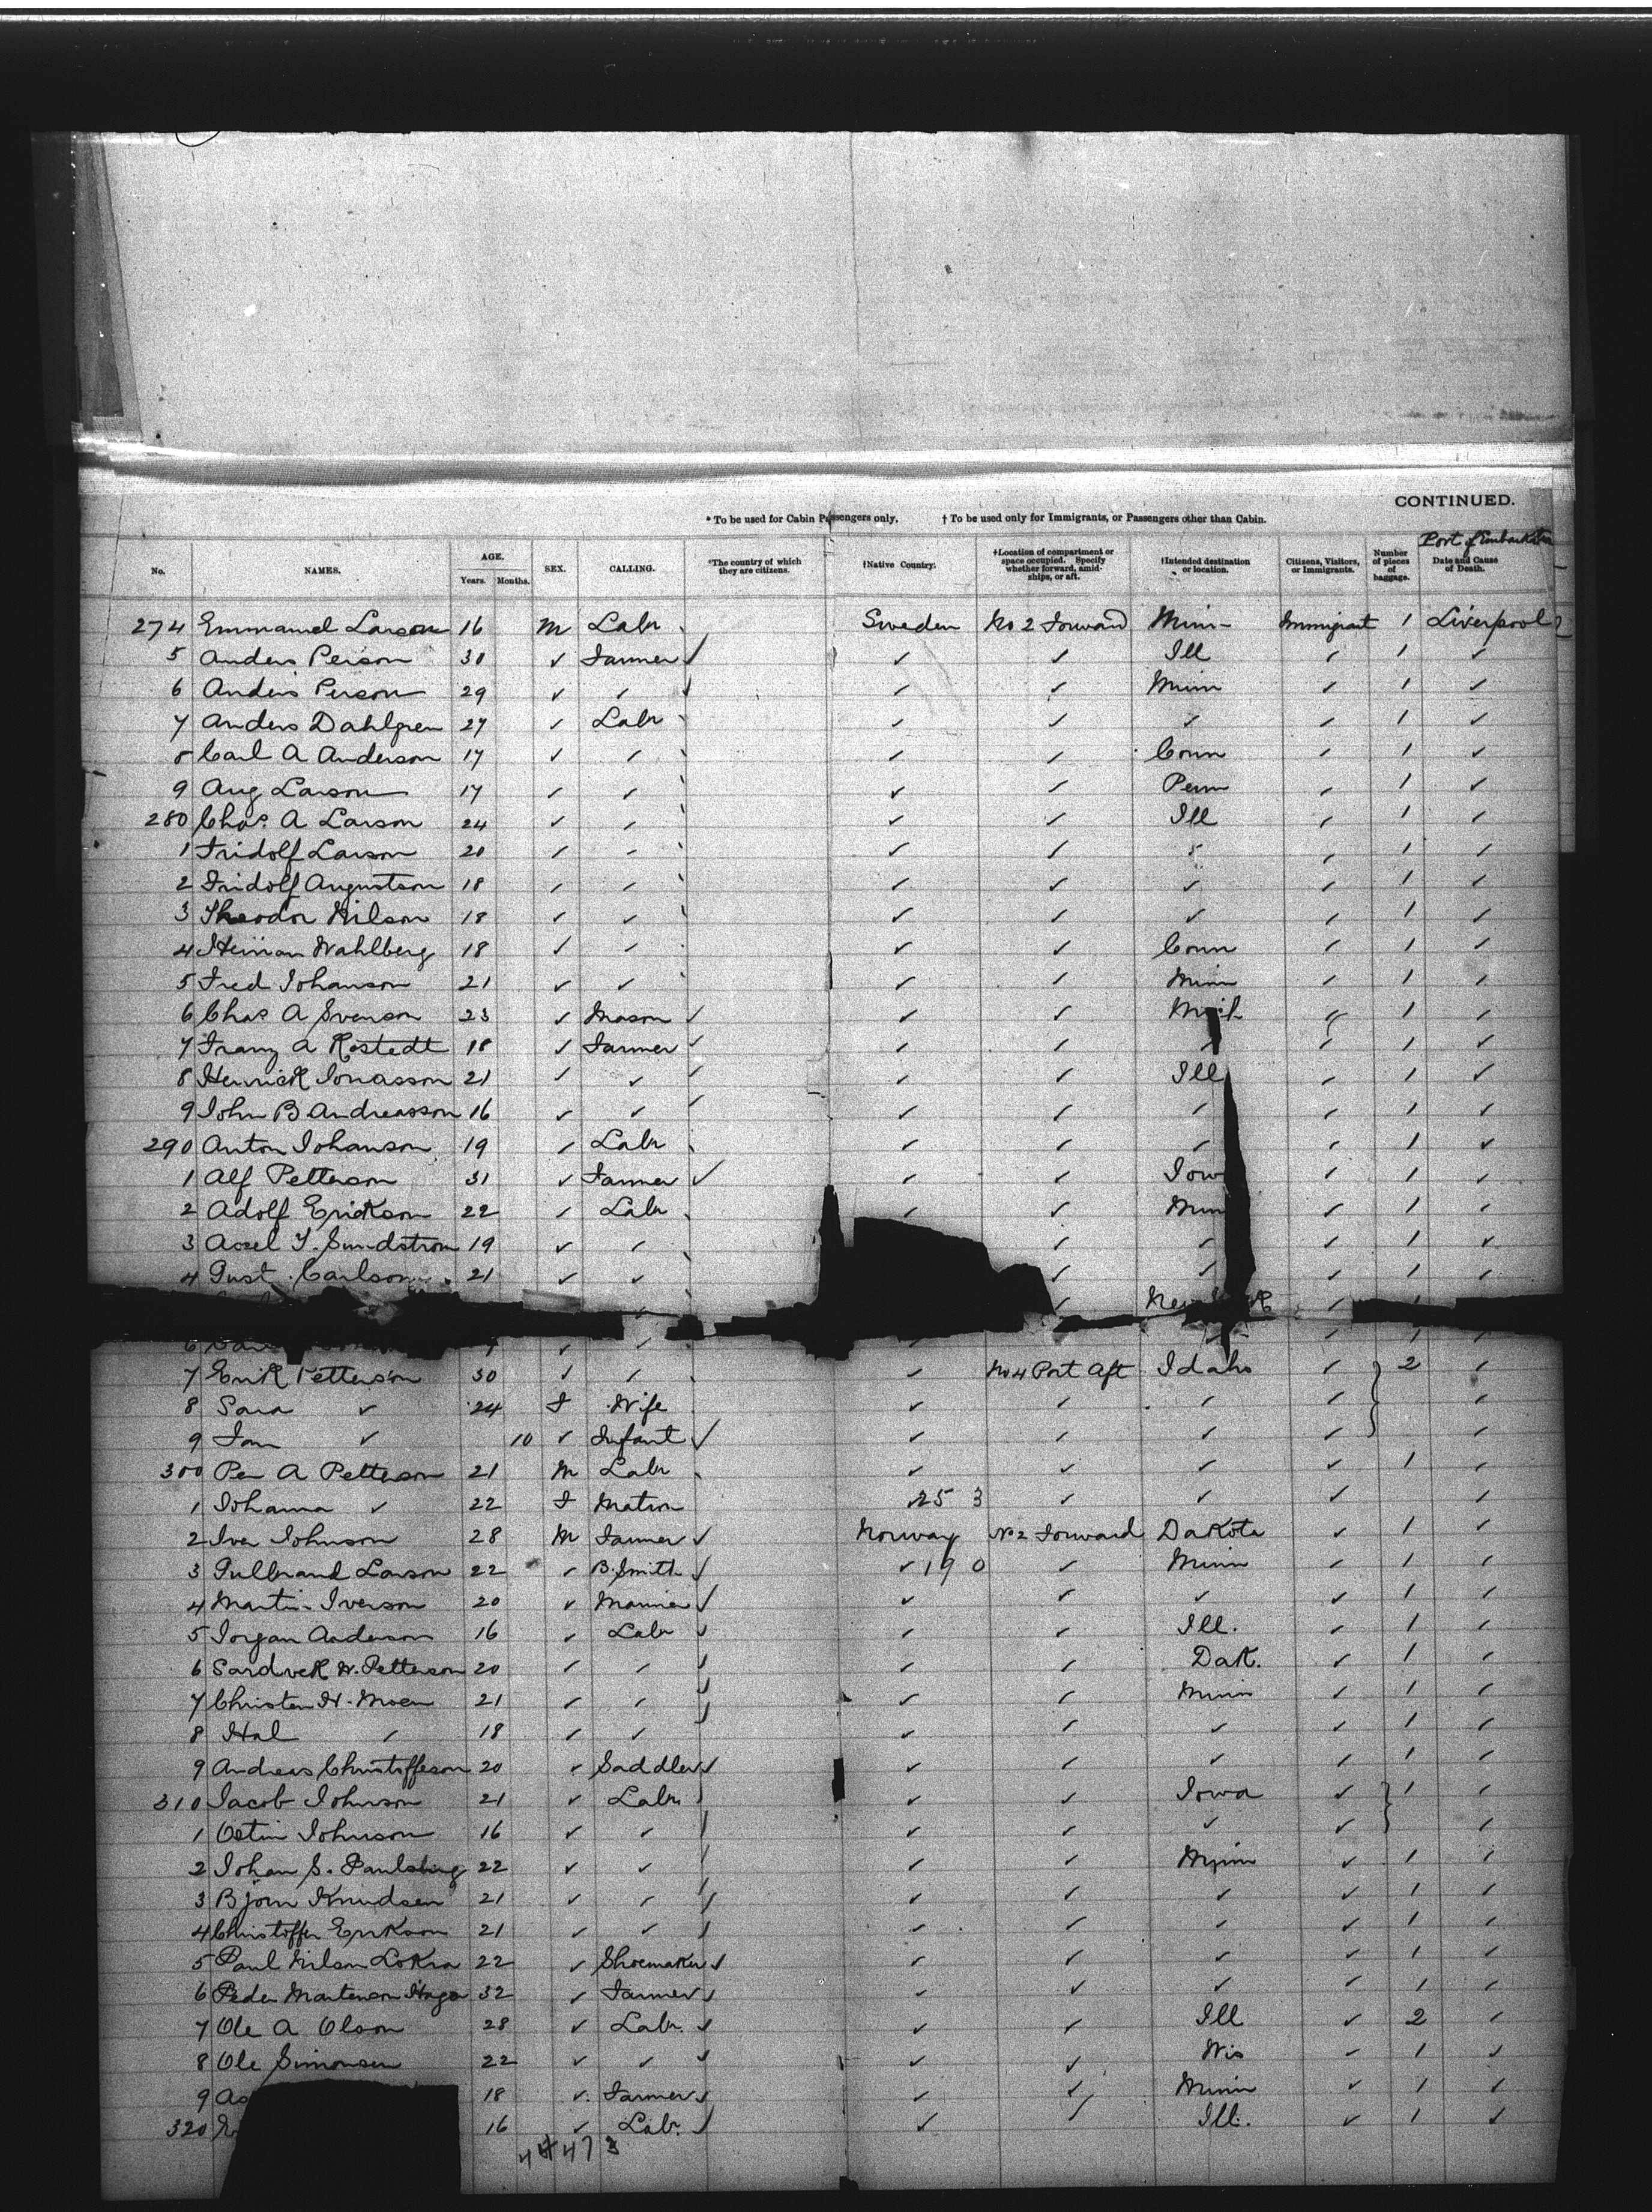 CONTINUED.
* To be used for Cabin Passengers only. † To be used only for Immigrants, or Passengers other than Cabin.
Port of Embarkation
No. NAMES. AGE. Years. Months. SEX. CALLING. *The country of which they are citizens. †Native Country. †Location of compartment or space occupied. Specify whether forward, amidships, or aft. †Intended destination or location. Citizens, Visitors, or Immigrants. Number of pieces of baggage. Date and Cause of Death.
274 Emmanuel Larson 16 M Labr Sweden No 2 Forward Minn Immigrant 1 Liverpool
5 Anders Person 30 ✓ Farmer ✓ ✓ ✓ Ill ✓ 1 ✓
6 Anders Person 29 ✓ ✓ ✓ ✓ ✓ Minn ✓ 1 ✓
7 Anders Dahlgren 27 ✓ Labr ✓ ✓ ✓ ✓ 1 ✓
8 Carl A Anderson 17 ✓ ✓ ✓ ✓ Conn ✓ 1 ✓
9 Aug Larson 17 ✓ ✓ ✓ ✓ Penn ✓ 1 ✓
280 Chas. A Larson 24 ✓ ✓ ✓ ✓ Ill ✓ 1 ✓
1 Fridolf Larson 20 ✓ ✓ ✓ ✓ ✓ ✓ 1 ✓
2 Fridolf Augustson 18 ✓ ✓ ✓ ✓ ✓ ✓ 1 ✓
3 Theodor Nilson 18 ✓ ✓ ✓ ✓ ✓ ✓ 1 ✓
4 Herman Wahlberg 18 ✓ ✓ ✓ ✓ Conn ✓ 1 ✓
5 Fred Johanson 21 ✓ ✓ ✓ ✓ Minn ✓ 1 ✓
6 Chas A Svenson 23 ✓ Mason ✓ ✓ ✓ Mich ✓ 1 ✓
7 Franz A Rostedt 18 ✓ Farmer ✓ ✓ ✓ ✓ ✓ 1 ✓
8 Henrick Jonasson 21 ✓ ✓ ✓ ✓ ✓ Ill ✓ 1 ✓
9 John B Andreasson 16 ✓ ✓ ✓ ✓ ✓ ✓ ✓ 1 ✓
290 Anton Johanson 19 ✓ Labr ✓ ✓ ✓ ✓ 1 ✓
1 Alf Petterson 31 ✓ Farmer ✓ ✓ ✓ Iow ✓ 1 ✓
2 Adolf Erickson 22 ✓ Labr ✓ ✓ Minn ✓ 1 ✓
3 Axel Sundstrom 19 ✓ ✓ ✓ ✓ ✓ 1 ✓
4 Gust Carlson 21 ✓ ✓ ✓ ✓ ✓ 1 ✓
6
7 Erik Petterson 30 ✓ ✓ ✓ No 4 Port Aft Idaho ✓ 2 ✓
8 Sara ✓ 24 F Wife ✓ ✓ ✓ ✓ ✓
9 ✓ 10 ✓ Infant ✓ ✓ ✓ ✓ ✓ ✓
300 Per A Petterson 21 M Labr ✓ ✓ ✓ ✓ 1 ✓
1 Johanna ✓ 22 F Matron 25 3 ✓ ✓ ✓ ✓
2 Iver Johnson 28 M Farmer ✓ Norway No 2 Forward Dakota ✓ 1 ✓
3 Gulbrand Larson 22 ✓ B. Smith ✓ ✓ 19 0 ✓ Minn ✓ 1 ✓
4 Martin Iverson 20 ✓ Mariner ✓ ✓ ✓ ✓ ✓ 1 ✓
5 Jorgan Anderson 16 ✓ Labr ✓ ✓ ✓ Ill. ✓ 1 ✓
6 Petterson 20 ✓ ✓ ✓ ✓ ✓ Dak. ✓ 1 ✓
7 Christen H. Moen 21 ✓ ✓ ✓ ✓ ✓ Minn ✓ 1 ✓
8 Hal ✓ 18 ✓ ✓ ✓ ✓ ✓ ✓ 1 ✓
9 Andreas Christoffeson 20 ✓ Saddler ✓ ✓ ✓ ✓ ✓ 1 ✓
310 Jacob Johnson 21 ✓ Labr ✓ ✓ Iowa ✓ 1 ✓
1 Ostin Johnson 16 ✓ ✓ ✓ ✓ ✓ ✓ ✓
2 Johan S. Paulsberg 22 ✓ ✓ ✓ ✓ Minn ✓ 1 ✓
3 Bjorn Knudsen 21 ✓ ✓ ✓ ✓ ✓ ✓ 1 ✓
4 Christoffer Erikson 21 ✓ ✓ ✓ ✓ ✓ ✓ 1 ✓
5 Paul Nilson Lokra 22 ✓ Shoemaker ✓ ✓ ✓ ✓ ✓ 1 ✓
6 Peder Martenson Haga 32 ✓ Farmer ✓ ✓ ✓ ✓ ✓ 1 ✓
7 Ole A Olson 28 ✓ Labr. ✓ ✓ ✓ Ill ✓ 2 ✓
8 Ole Simonsen 22 ✓ ✓ ✓ ✓ ✓ Wis ✓ 1 ✓
9 18 ✓ Farmer ✓ ✓ ✓ Minn ✓ 1 ✓
320 16 ✓ Labr. ✓ ✓ ✓ Ill. ✓ 1 ✓